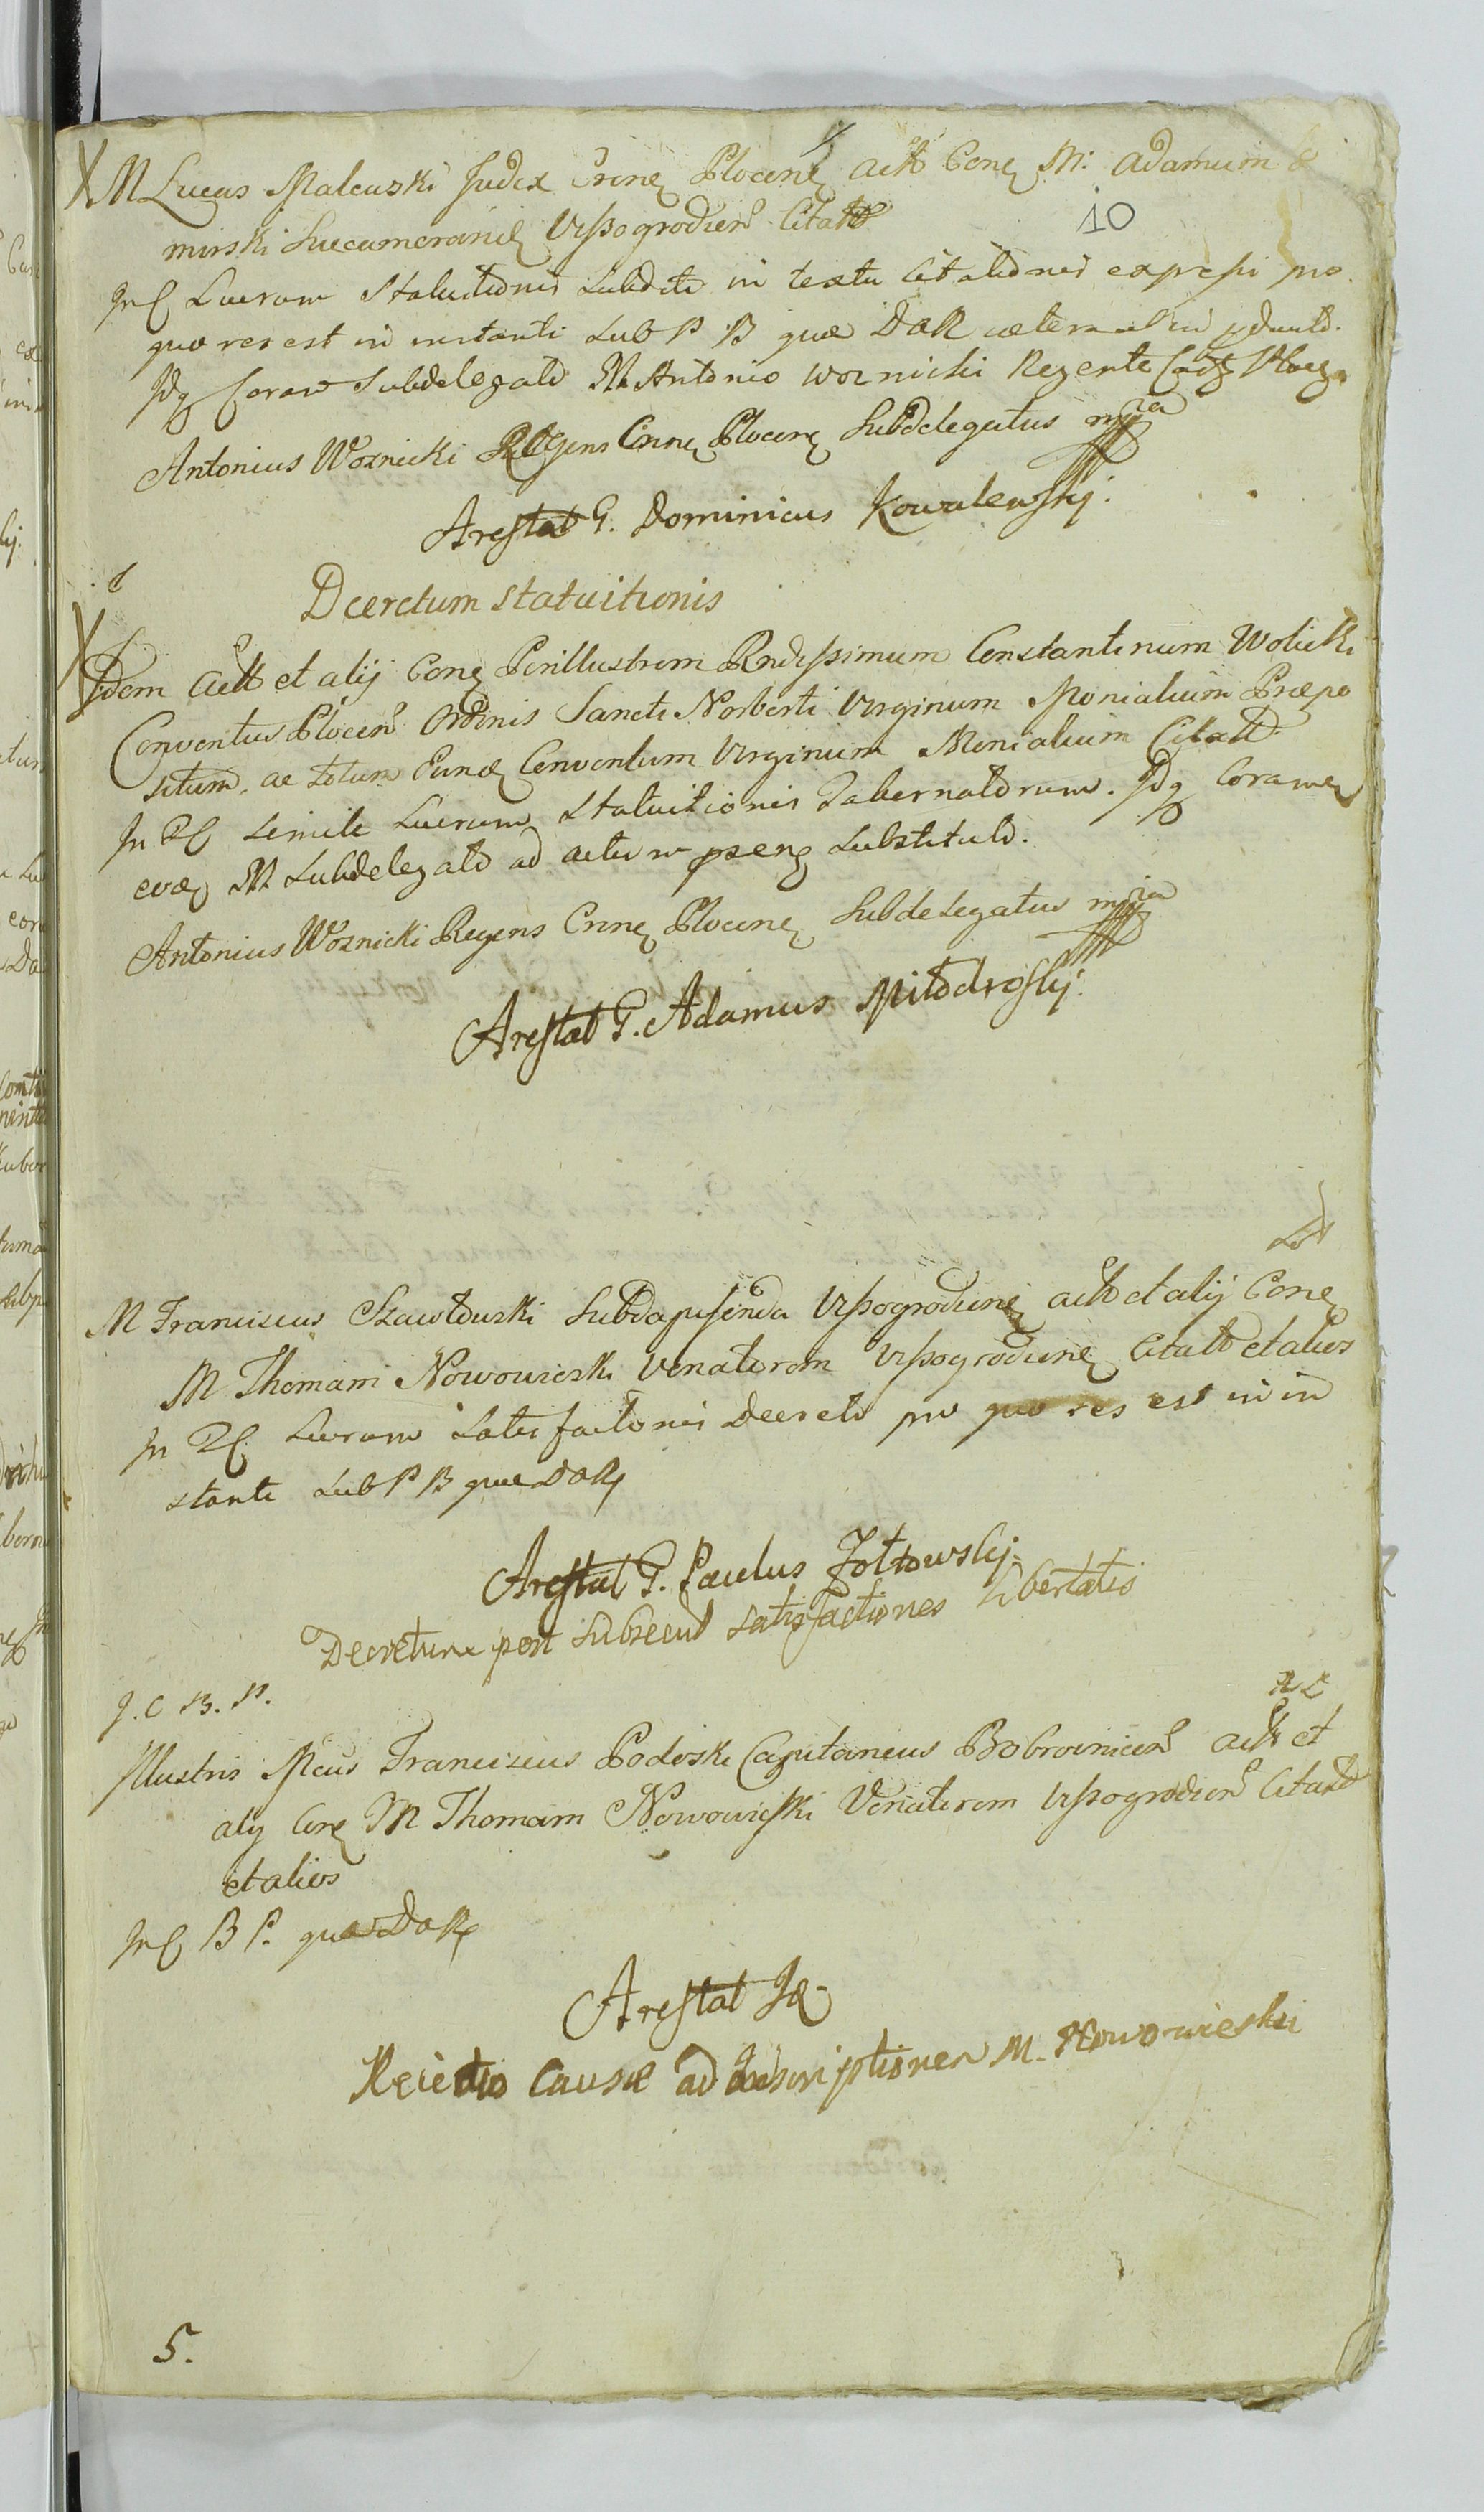 M Lucas Maleuski Judex Crnē Plocenē actt Conē M: Adamum
10
mirski Succameranū Vyszogrodien̄ Citatt
Lucrum Statuitionis Subditi in textu Citationis expressi pro
quo res est in instanti sub P B quæ D a R
Idq Coram Subdelegato M Antonio Woznicki Regente
Antonius Woznicki Regens Crnē Plocenē Subdelegatus mpria
Arestat G. Dominicus Kowalewskj.
Decretum Statuitionis
Idem actt et alij Conē Perillustrem Rndissimum Constantinum Wolicki
Conventus Plocen̄ Ordinis Sancti Norberti Virginum Monialium Præpo
situm, ac totum Eund Conventum Virginum Monialium Citatt
In simili Lucrum Statuitionis Tabernatorum. Idq Coram
M Subdelegato ad actum substituto.
Antonius Woznicki Regens Crnē Plocenē Subdelegatus mpria
Arestat G. Adamus Miłodroskj.
M Franciscus Szawłowski Subdapiferida Vyszogrodienē actt et alij Conē
M Thomam Nowowieski Venatorem Vyszogrodienē Citatt et alios
In Lucrum Satisfactionis Decreto pro quo res est in in
stanti sub P B quæ D a R
Arestat G. Paulus Żołtowskj.
Decretum post subsecut Satisfactiones Libertatis
J. C B. P.
Illustris Mcus Franciscus Podoski Capitaneus Bobrownicen̄ actt et
alij Conē M Thomam Nowowieski Venatorem Vyszogrodien̄ Citatt
et alios
B P. quæ D a R
Arestat
Reiectio Causæ ad Inscriptionem M. Nowowieski
5.